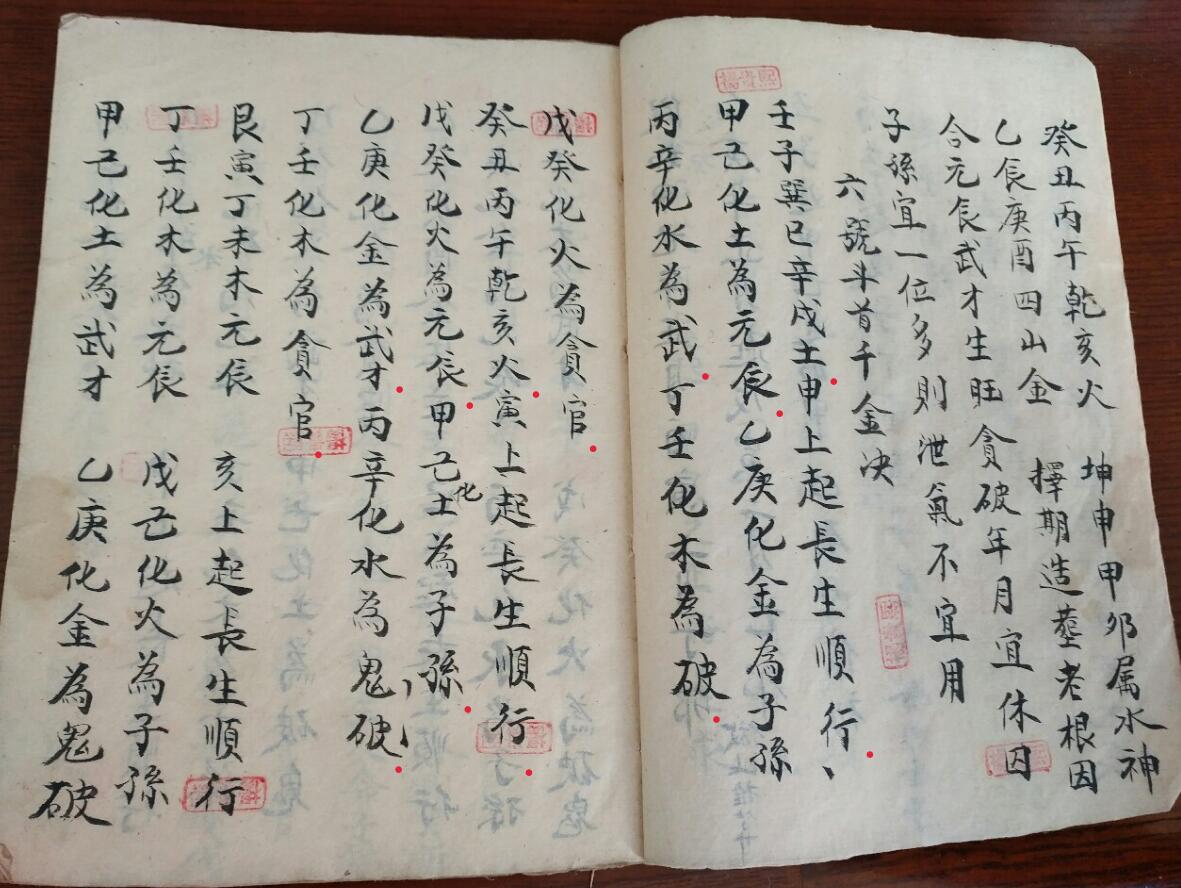 癸丑丙午乾亥火　坤申甲卯属水神
乙辰庚酉四山金　擇期造塟老根因
合元辰武才生旺　貪破年月宜休囚
子孫宜一位多則泄氣不宜用
六號斗首千金决
壬子巽巳辛戌土申上起長生順行、
甲己化土為元辰乙庚化金為子孫
丙辛化水為武丁壬化木為破
戊癸化火為貪官
癸丑丙午乾亥火寅上起長生順行
戊癸化火為元辰甲己化土為子孫
乙庚化金為武才丙辛化水為鬼破
丁壬化木為貪官
艮寅丁未木元辰　亥上起長生順行
丁壬化木為元辰　戊己化火為子孫
甲己化土為武才　乙庚化金為鬼破